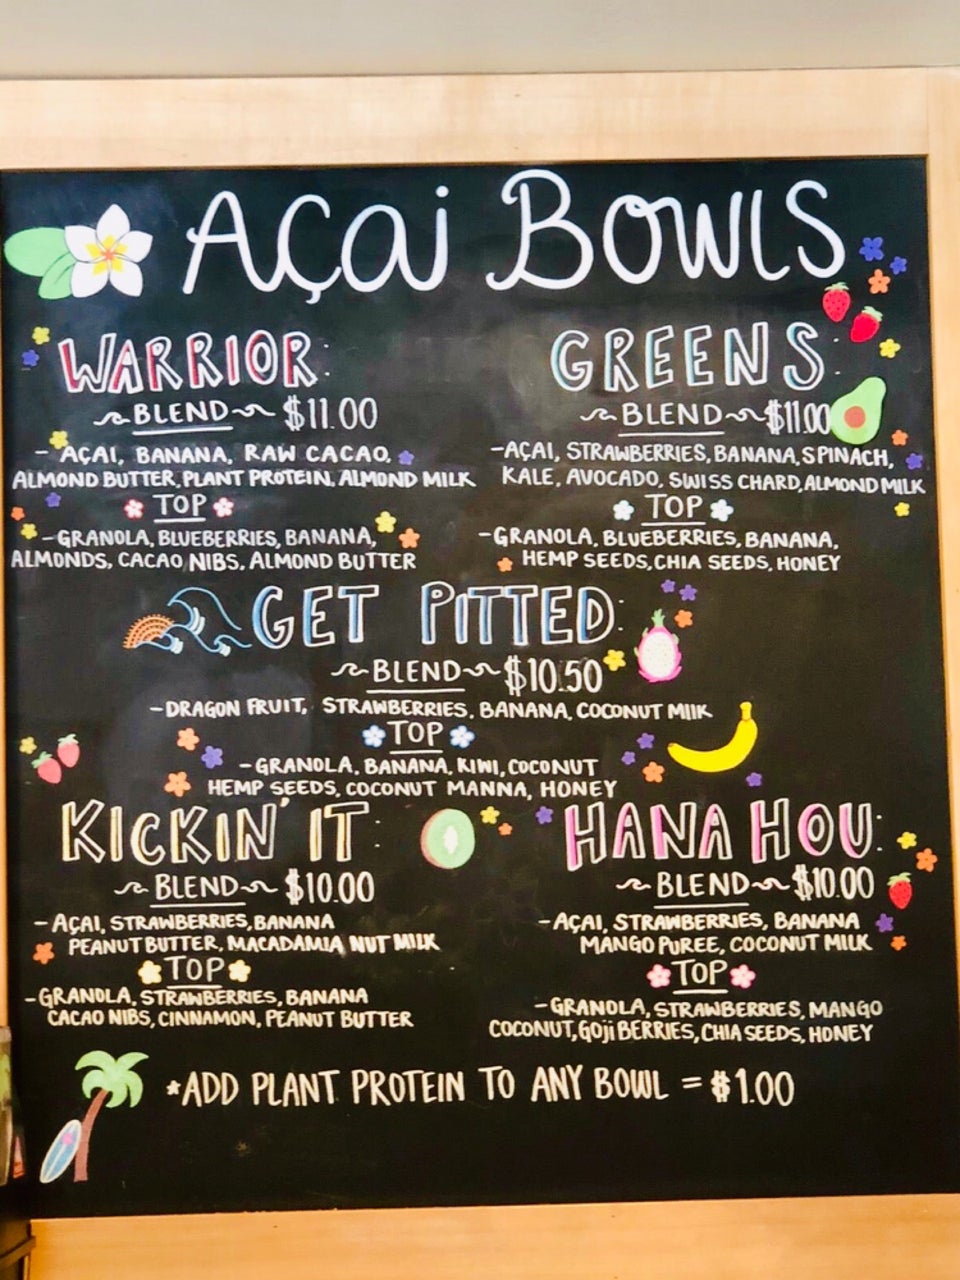 AÇai BOWLS
WARRIOR:
BLEND $11.00
- AÇAI, BANANA, RAW CACAO,
ALMOND BUTTER, PLANT PROTEIN, ALMOND MILK
TOP
- GRANOLA, BLUEBERRIES, BANANA,
ALMONDS, CACAO NIBS, ALMOND BUTTER
GREENS:
BLEND $11.00
- AÇAI, STRAWBERRIES, BANANA, SPINACH,
KALE, AVOCADO, SWISS CHARD, ALMOND MILK
TOP
- GRANOLA, BLUEBERRIES, BANANA,
HEMP SEEDS, CHIA SEEDS, HONEY
GET PITTED:
BLEND $10.50
- DRAGON FRUIT, STRAWBERRIES, BANANA, COCONUT MILK
TOP
- GRANOLA, BANANA, KIWI, COCONUT
HEMP SEEDS, COCONUT MANNA, HONEY
KICKIN' IT:
BLEND $10.00
- AÇAI, STRAWBERRIES, BANANA
PEANUT BUTTER, MACADAMIA NUT MILK
TOP
- GRANOLA, STRAWBERRIES, BANANA
CACAO NIBS, CINNAMON, PEANUT BUTTER
HANA HOU:
BLEND $10.00
- AÇAI, STRAWBERRIES, BANANA
MANGO PUREE, COCONUT MILK
TOP
- GRANOLA, STRAWBERRIES, MANGO
COCONUT, GOJI BERRIES, CHIA SEEDS, HONEY
*ADD PLANT PROTEIN TO ANY BOWL = $1.00